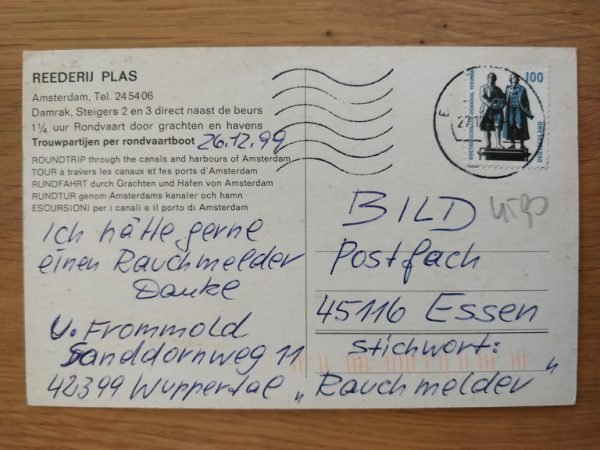 REEDERIJ PLAS
Amsterdam, Tel. 24 54 06
Damrak, Steigers 2 en 3 direct naast de beurs
1¼ uur Rondvaart door grachten en havens
Trouwpartijen per rondvaartboot 26.12.99
ROUNDTRIP through the canals and harbours of Amsterdam
TOUR à travers les canaux et les ports d'Amsterdam
RUNDFAHRT durch Grachten und Häfen von Amsterdam
RUNDTUR genom Amsterdams kanaler och hamn
ESCURSIONI per i canali e il porto di Amsterdam
Ich hätte gerne
einen Rauchmelder
Danke
U. Frommold
Sanddornweg 11
42399 Wuppertal
100
GOETHE-SCHILLER-DENKMAL WEIMAR
DEUTSCHLAND
27.12
BILD
Postfach
45116 Essen
Stichwort:
„Rauchmelder"